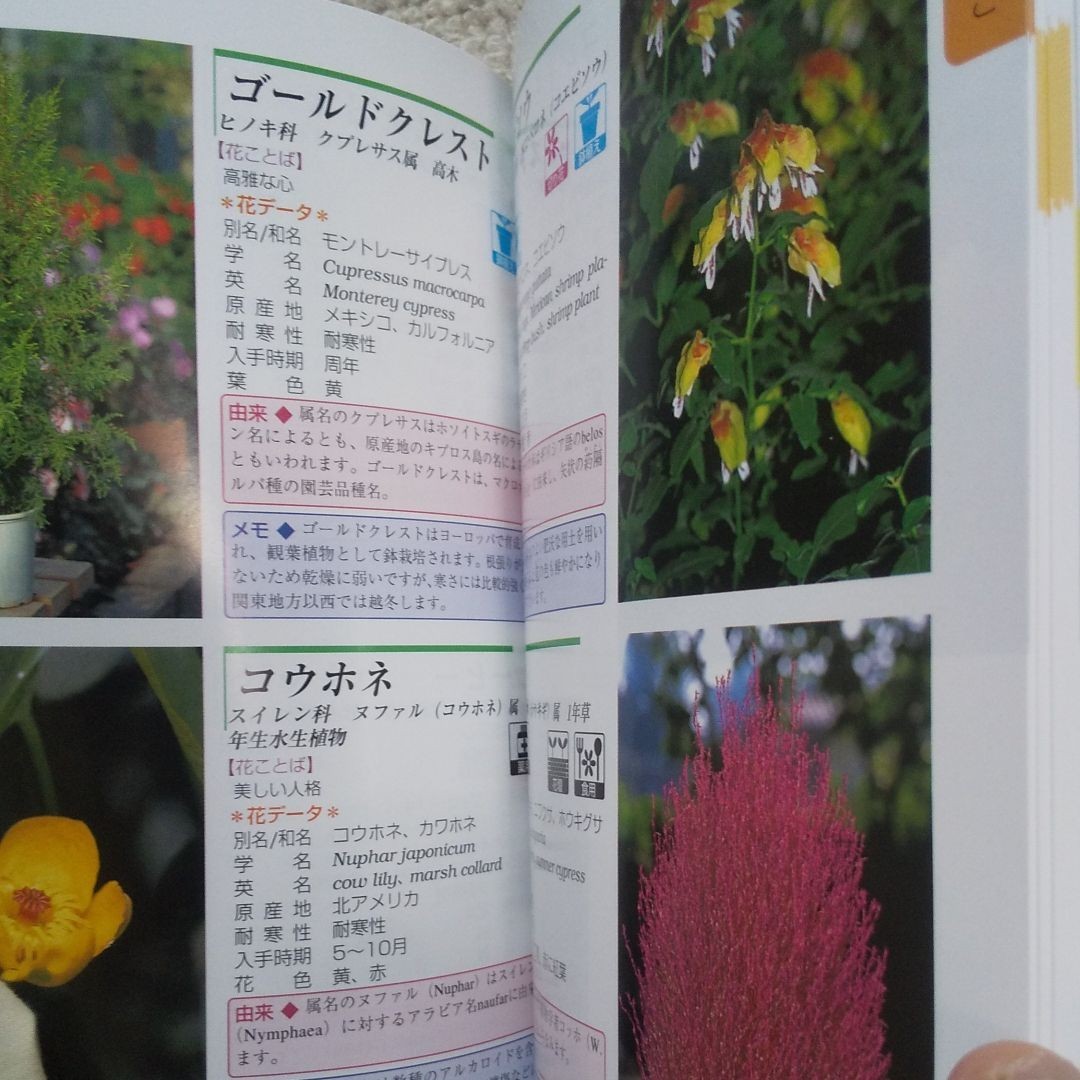 ゴールドクレスト
ヒノキ科 クプレサス属 高木
【花ことば】
高雅な心
＊花データ＊
別名/和名 モントレーサイプレス
学名 Cupressus macrocarpa
英名 Monterey cypress
原産地 メキシコ、カルフォルニア
耐寒性 耐寒性
入手時期 周年
葉色 黄
由来◆属名のクプレサスはホソイトスギのラテ
ン名によるとも、原産地のキプロス島の名によ
ともいわれます。ゴールドクレストは、マクロ
ルパ種の園芸品種名。
メモ◆ゴールドクレストはヨーロッパで
れ、観葉植物として鉢栽培されます。根張り
ないため乾燥に弱いですが、寒さには比較的強
関東地方以西では越冬します。
コウホネ
スイレン科 ヌファル（コウホネ）属
年生水生植物
【花ことば】
美しい人格
＊花データ＊
別名/和名 コウホネ、カワホネ
学名 Nuphar japonicum
英名 cow lily、marsh collard
原産地 北アメリカ
耐寒性 耐寒性
入手時期 5〜10月
花色 黄、赤
由来◆属名のヌファル（Nuphar）はスイレン
（Nymphaea）に対するアラビア名naufarに由
ます。
数種のアルカロイドを含
（コエビソウ）
鉢植え
コエビソウ
shrimp pla-
bush, shrimp plant
ギリシア語のbelos
矢状の葯隔
肥沃な用土を用い
色も鮮やかになり
ます。
属 1年草
花壇
食用
ホウキグサ
summer cypress
に紅葉
コッホ（W.
ます。